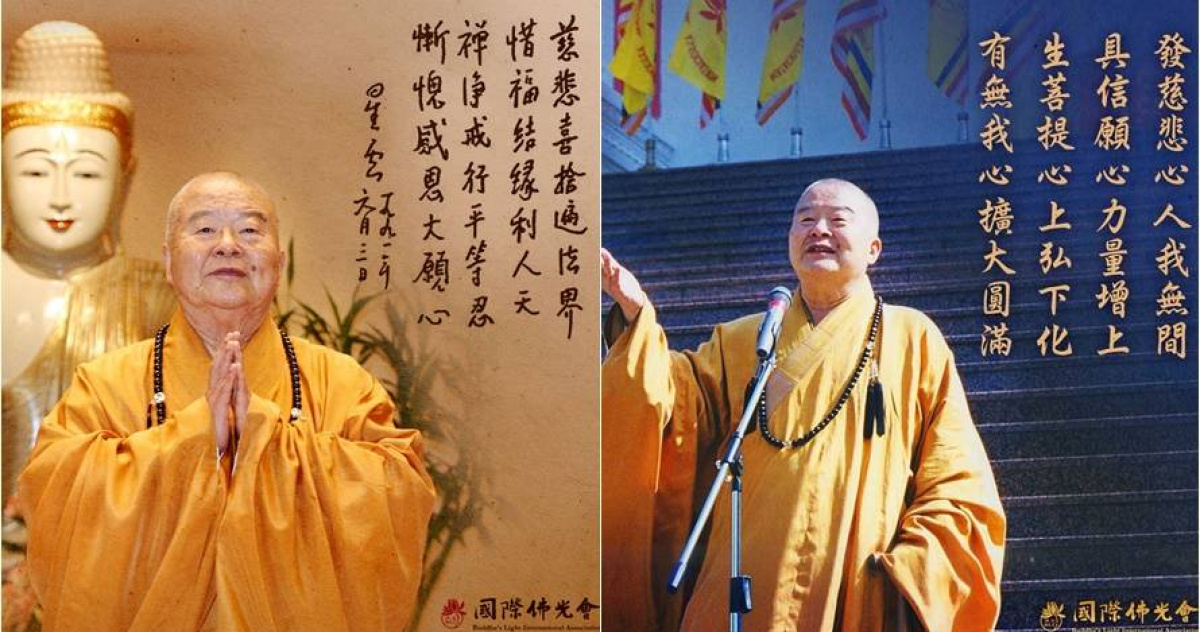 慈悲喜捨遍法界
惜福結緣利人天
禪淨戒行平等忍
慚愧感恩大願心
星雲
國際佛光會
Buddha's Light International
發慈悲心人我無間
具信願心力量增上
生菩提心上弘下化
有無我心擴大圓滿
國際佛光會
Buddha's Light International Association